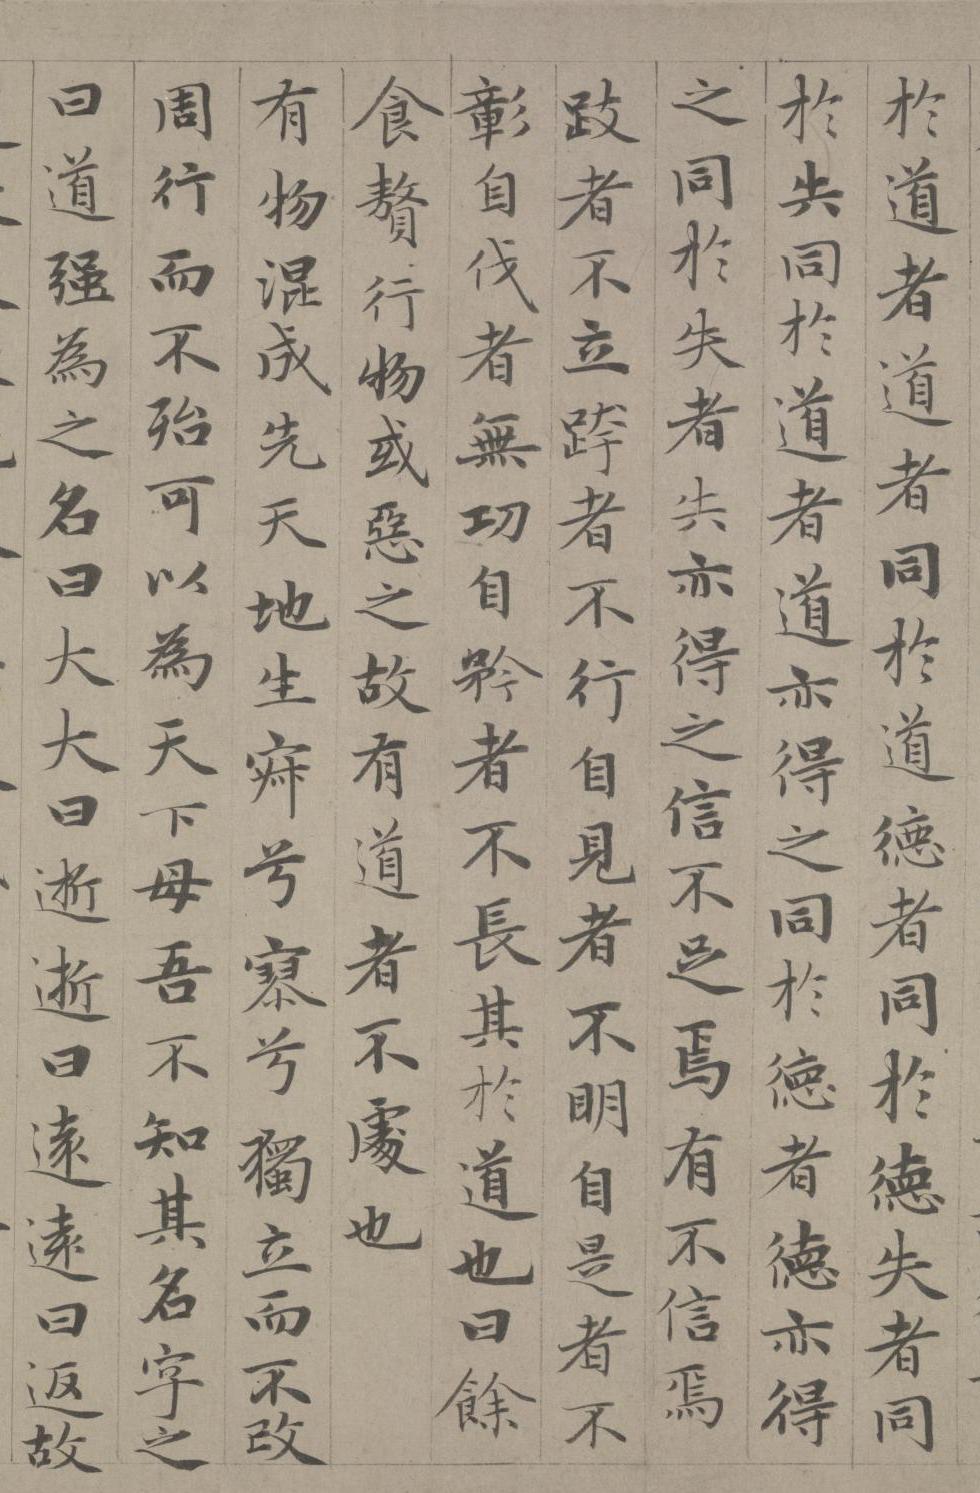 於道者道者同於道德者同於德失者同
於失同於道者道亦得之同於德者德亦得
之同於失者失亦得之信不足焉有不信焉
跂者不立跨者不行自見者不明自是者不
彰自伐者無功自矜者不長其於道也曰餘
食贅行物或惡之故有道者不處也
有物混成先天地生寂兮寥兮獨立而不改
周行而不殆可以為天下母吾不知其名字之
曰道强為之名曰大大曰逝逝曰遠遠曰返故